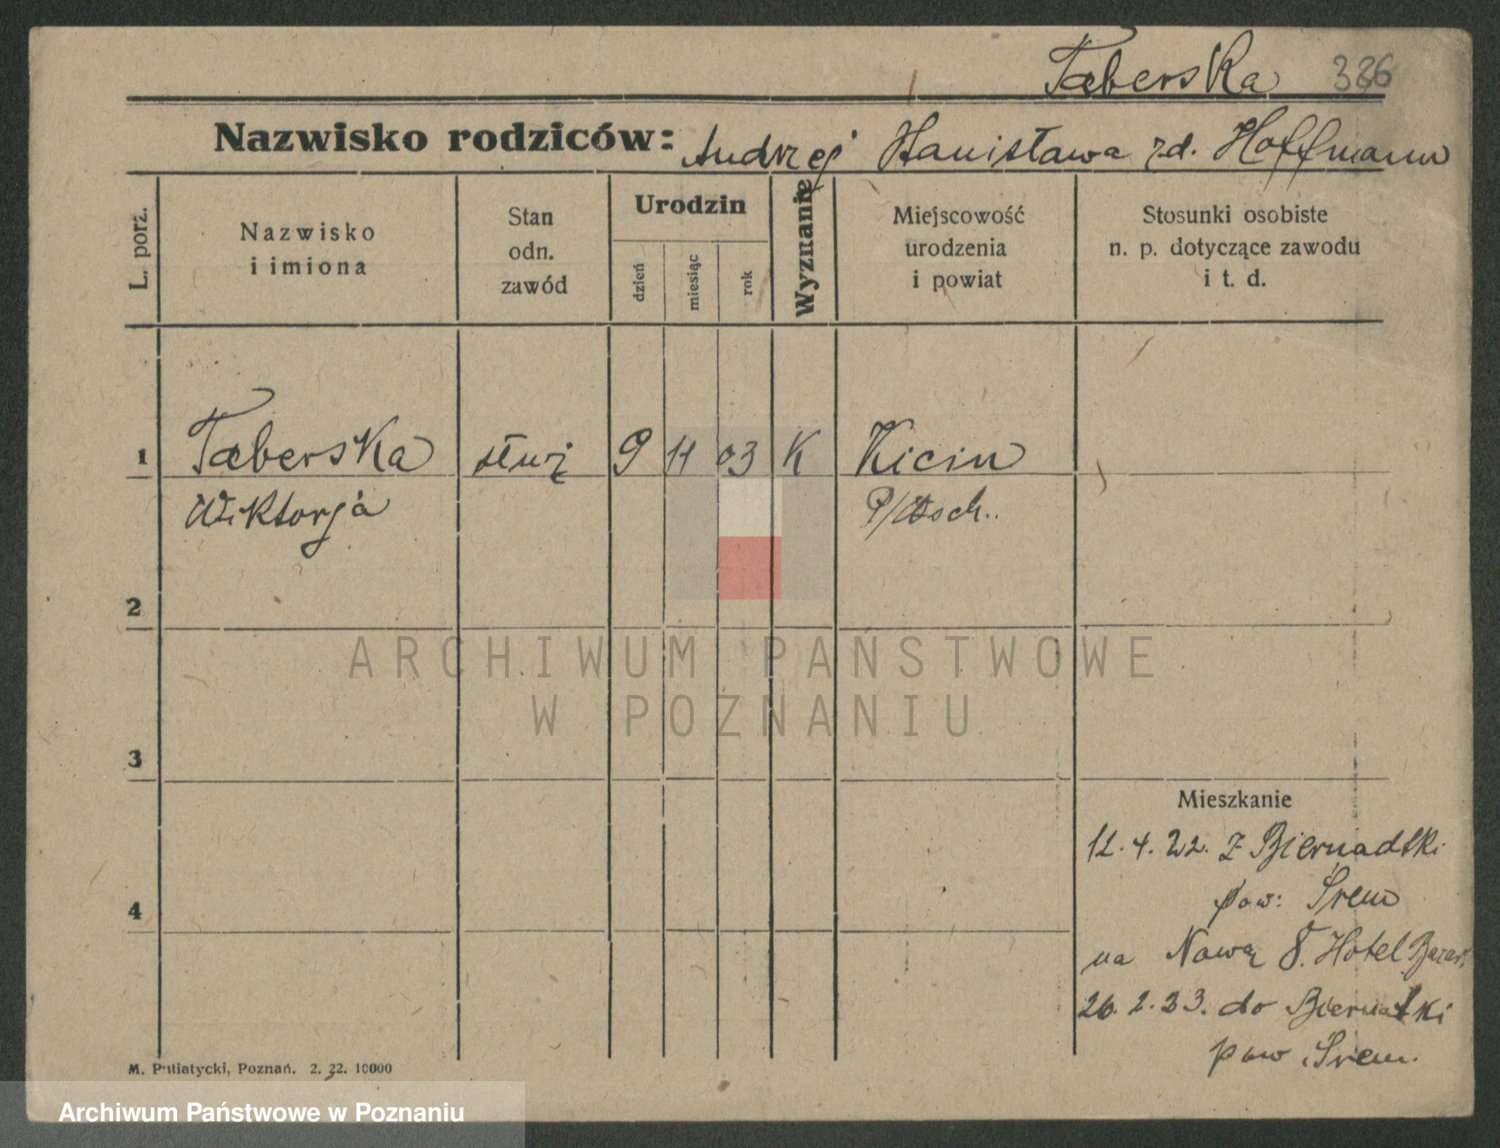 Taberska 386
Nazwisko rodziców: Andrzej Stanisława zd. Hoffmann
L. porz.
Nazwisko i imiona
Stan odn. zawód
Urodzin
dzień
miesiąc
rok
Wyznanie
Miejscowość urodzenia i powiat
Stosunki osobiste n. p. dotyczące zawodu i t. d.
1 Taberska służ 9 11 03 K Kicin
Wiktorja P/Wsch..
2
ARCHIWUM PAŃSTWOWE
W POZNANIU
3
Mieszkanie
12.4.22. z Biernadtki
4
pow: Śrem
na Nową 8. Hotel Bazar.
26.2.23. do Biernatki
pow Śrem.
M. Putiatycki, Poznań. 2. 22. 10000
Archiwum Państwowe w Poznaniu